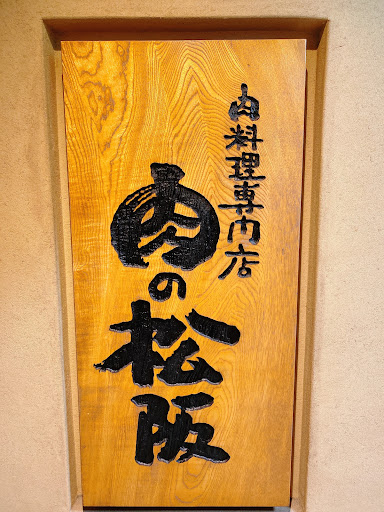 肉料理専門店
肉の松阪